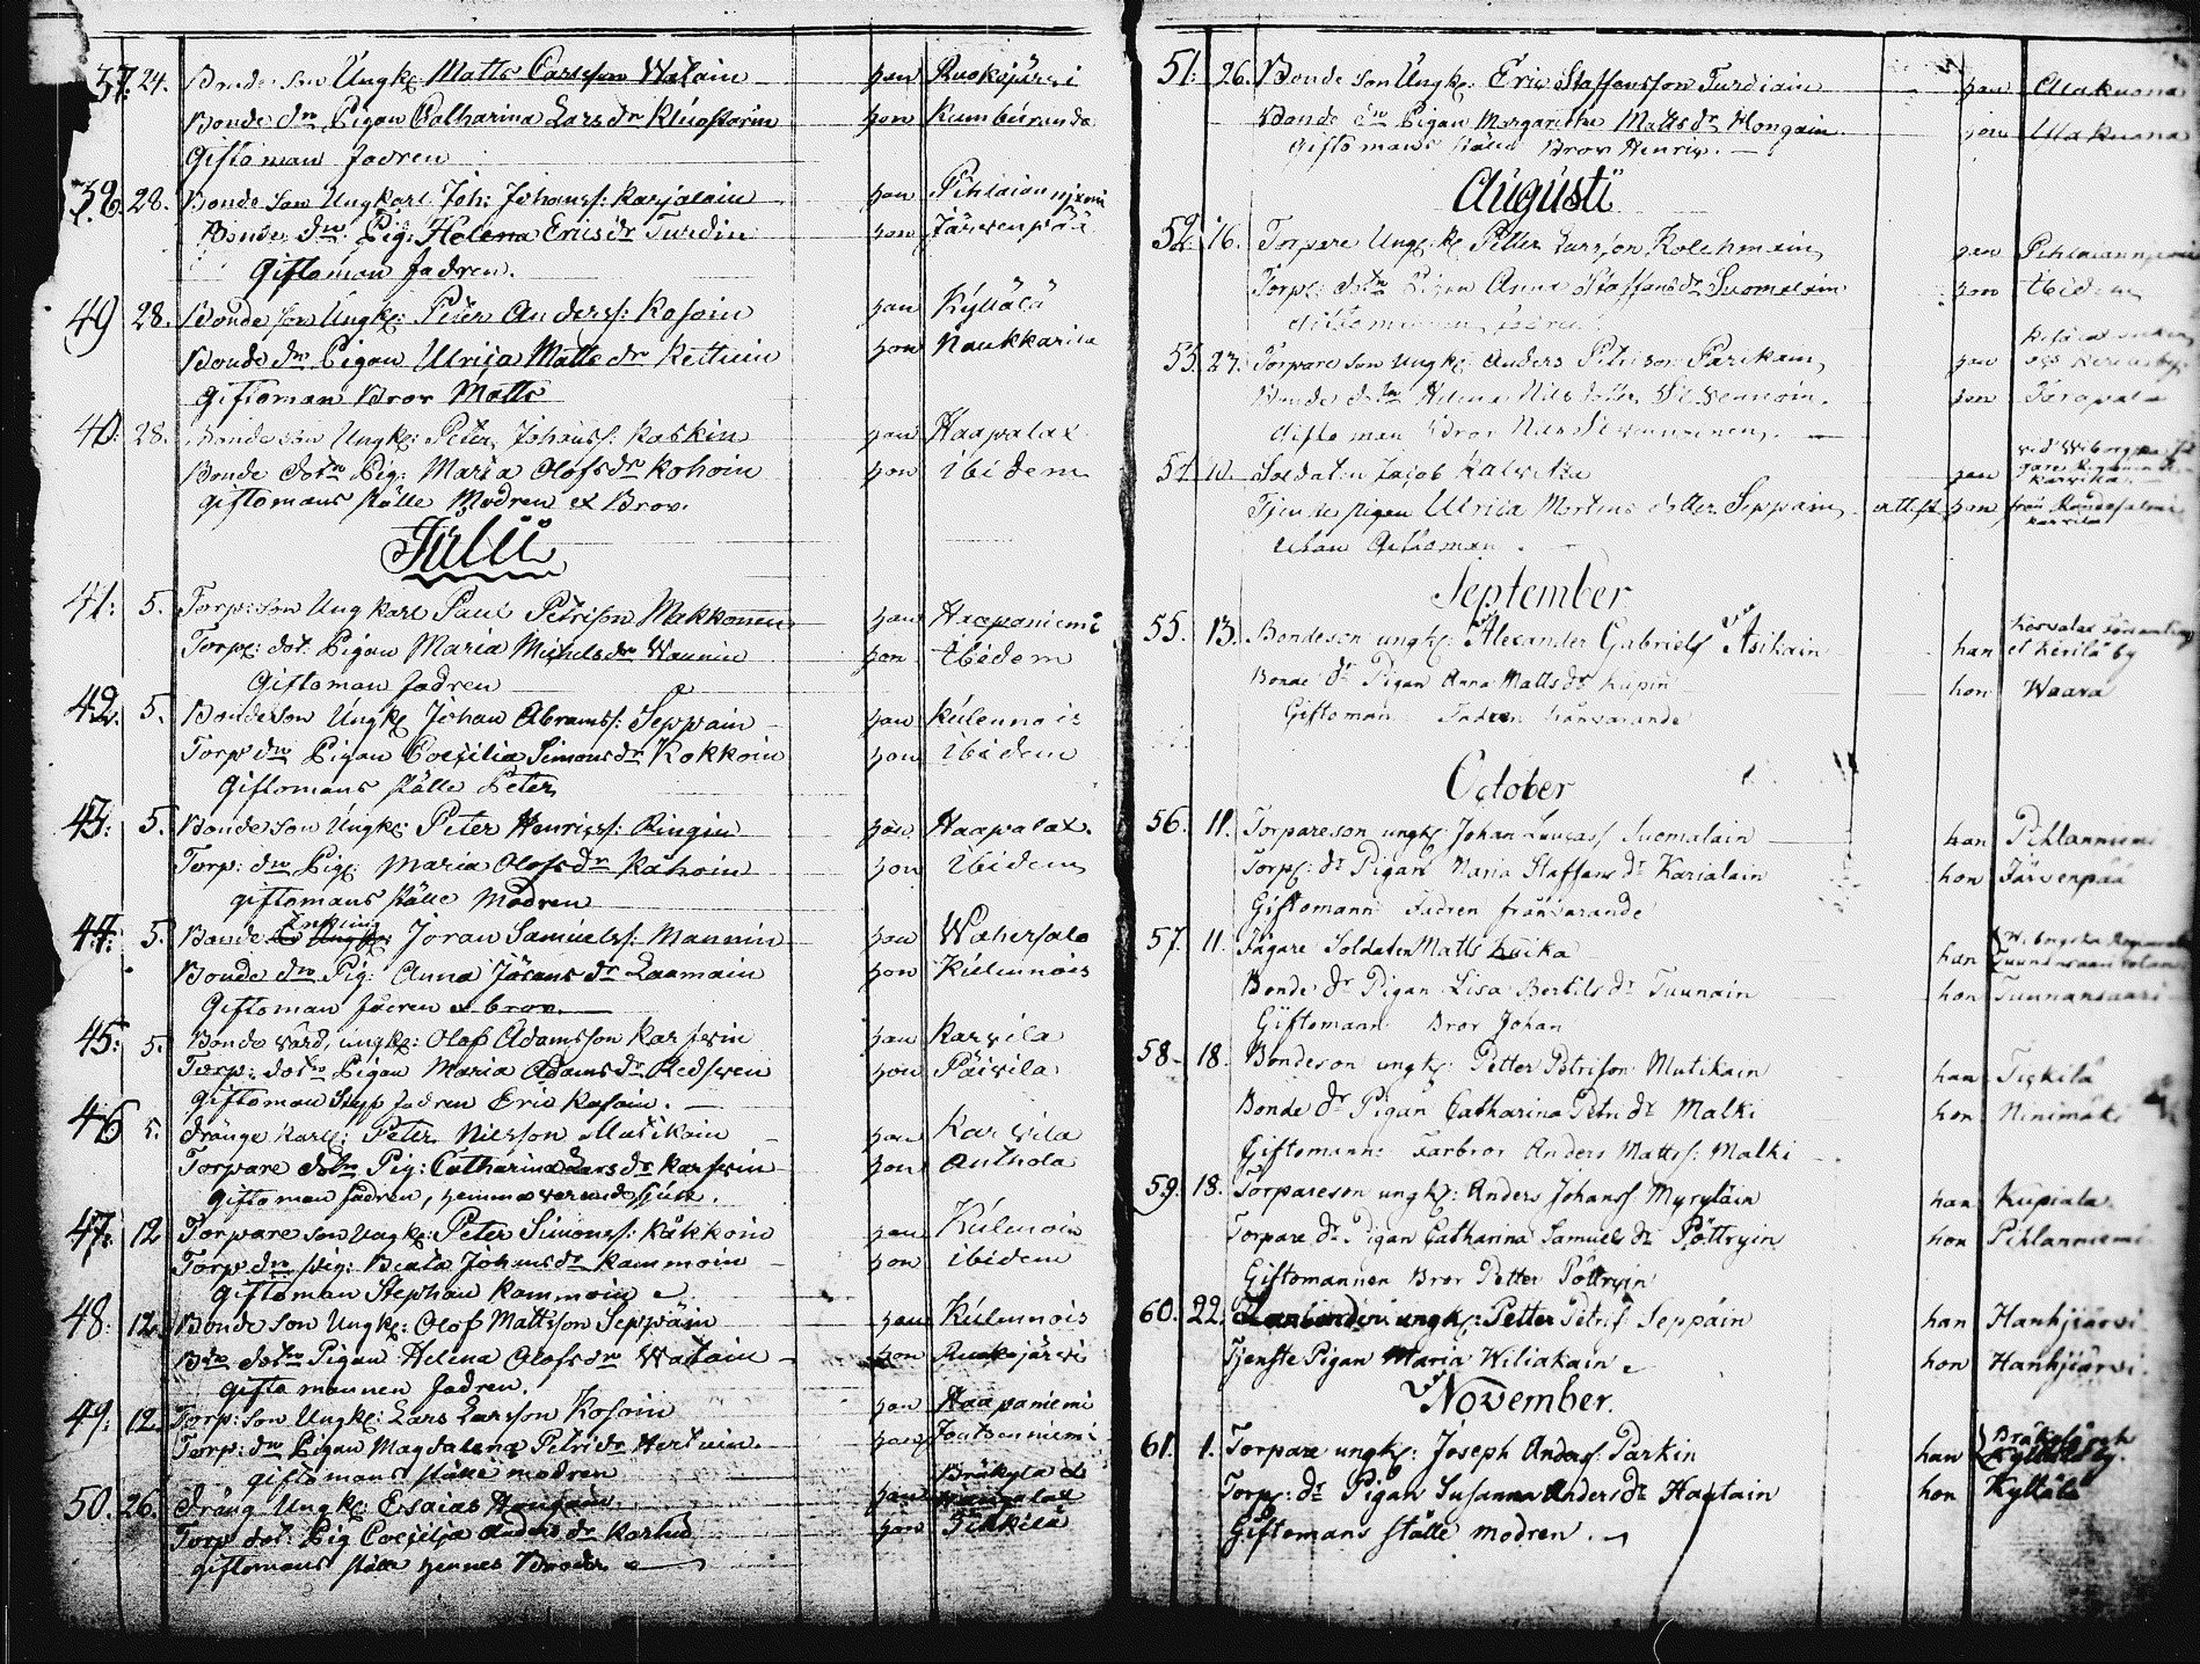 37. 24. Bonde Son Ungk: Matts Carlsson Watain han Ruokojärvi
Bonde dr Pigan Catharina Lars dr han Kumburanda
Giftoman Fadren
38. 28. Bonde Son Ungkarl Joh: Johanss: Karjalain han
Bonde dr Pig: Helena Erics dr Turdin hon Järwenpää
Giftoman Fadren.
49 28. Bonde Son Ungk: Peter Anderss: Kosoin han Kyllälä
Bonde dr Pigan Ulrica Matts dr Kettuin hon Naukkarila
Giftoman Bror Matts
40: 28. Bonde Son Ungk: Peter Johanss: Kaskin han Haapalax
Bonde dotr Pig: Maria Olofs dr Kohoin hon ibidem
giftomans ställe Modren et Bror.
Julii
41: 5. Torp: Son Ungkarl Paul Petrison Makkonen han Haapaniemi
Torp: dot: Pigan Maria Michels dr Waunin hon Ibidem
Giftoman Fadren
42. 5. Bondeson Ungk Johan Abramss: Seppain han Kulennois
Torp dr Pigan Coecilia Simons dr Kokkoin hon ibidem
Giftomans ställe Peter
43: 5. Bonde Son Ungk: Peter Henricss: Ringin han Haapalax.
Torp: dr Pig: Maria Olofs dr Kåhoin hon ibidem
giftomans ställe Modren
44: 5. Bonde Enkling Jöran Samuelss: Mannin han Wahersalo
Bonde dr Pig: Anna Jörans dr Laamain hon Kulennois
Giftoman Fadren et bror.
45: 5. Bonde Wärd, ungk: Olof Adamsson Karfwin han Karvila
Torp: dotr Pigan Maria Adams dr Redswen hon Päivilä
Giftoman Stuff Fadren Eric Kosain.
46 5. Dränge Karl: Peter Nilsson Mutikain han Karvila
Torpare dotr Pig: Catharina Lars dr Karfwin hon Anthola
Giftoman fadren, hemma warande sjuk.
47: 12 Torpare Son Ungk: Peter Simonss: Kåkkoin han Kulenois
Torp dr Pig: Beata Johans dr Kammoin hon ibidem
Giftoman Stephan Kammoin
48: 12. Bonde Son Ungk: Olof Mattsson Seppäin han Kulennois
Bde dotr Pigan Helena Olofs dr Watain hon Ruokojärvi
Gifto mannen Fadren.
49: 12. Torp: Son Ungk: Lars Larsson Kosoin han Haapaniemi
Torp: dr Pigan Magdalena Petri dr Hertuin. hon Joutsenniemi
giftomans ställe modren
50. 26. Dräng Ungk: Esaias Hongain han Bräkyla et
Torp dot: Pig Coecilia Anders dr hon Tikkilä
giftomans ställe hennes Broder
51: 26. Bonde Son Ungk: Eric Staffansson Turdiain han Alakuona
Bonde dr Pigan Margaretha Matts dr Hongain. hon Ulakuona
giftomans ställe Bror Henric.
Augusti
52. 16. Torpare Ungk: Petter Larsson Kolehmain han Pihlaianniemi
Torp: dotr Pigan Anna Staffans dr Suomalain hon Ibidem
Giftomannen fadren
53. 27. Torpare Son Ungk: Anders Petrison Parikain, han
Bonde dotr Helena Nils dotter hon
Gifto man Bror Nils
54. 10. Soldaten Jacob Kalvika han
Tjenstepigan Ulrica Mortens dotter Seppain, attest hon från Randasalmi Karvila
utan Giftoman.
September
55. 13. Bondeson ungk: Alexander Gabrielss Asikain han et Kerilä by
Bonde dr Pigan Anna Matts dr Kupin hon Waara
Giftoman Fadren frånvarande
October
56. 11. Torpareson ungk: Johan Lucass Suomalain han Pihlanniemi
Torp: dr Pigan Maria Staffans dr Karialain hon Järvenpää
Giftomann Fadren frånvarande
57. 11. Jägare Soldaten Matts Luika han
Bonde dr Pigan Lisa Bertils dr Tuunain hon Tuunansaari
Giftomann Bror Johan
58. 18. Bondeson ungk: Petter Petrison Mutikain han Tickilä
Bonde dr Pigan Catharina Petri dr Malki hon Ninimäki
Giftomann: Farbror Anders Mattss: Malki
59. 18. Torpareson ungk: Anders Johanss Myryläin han Kupiala
Torpare dr Pigan Catharina Samuels dr Pöttryin hon Pihlanniemi
Giftomannen Bror Petter Pöttryin
60. 22. ungk: Petter Petriss Seppäin han Hanhjiärvi
Tjenste Pigan Maria Wiliakain hon Hanhjiärvi
November.
61. 1. Torpare ungk: Joseph Anderss: Parkin han Kyllälä by.
Torp: dr Pigan Susanna Anders dr Hartain hon Kyllälä
Giftomans ställe modren.